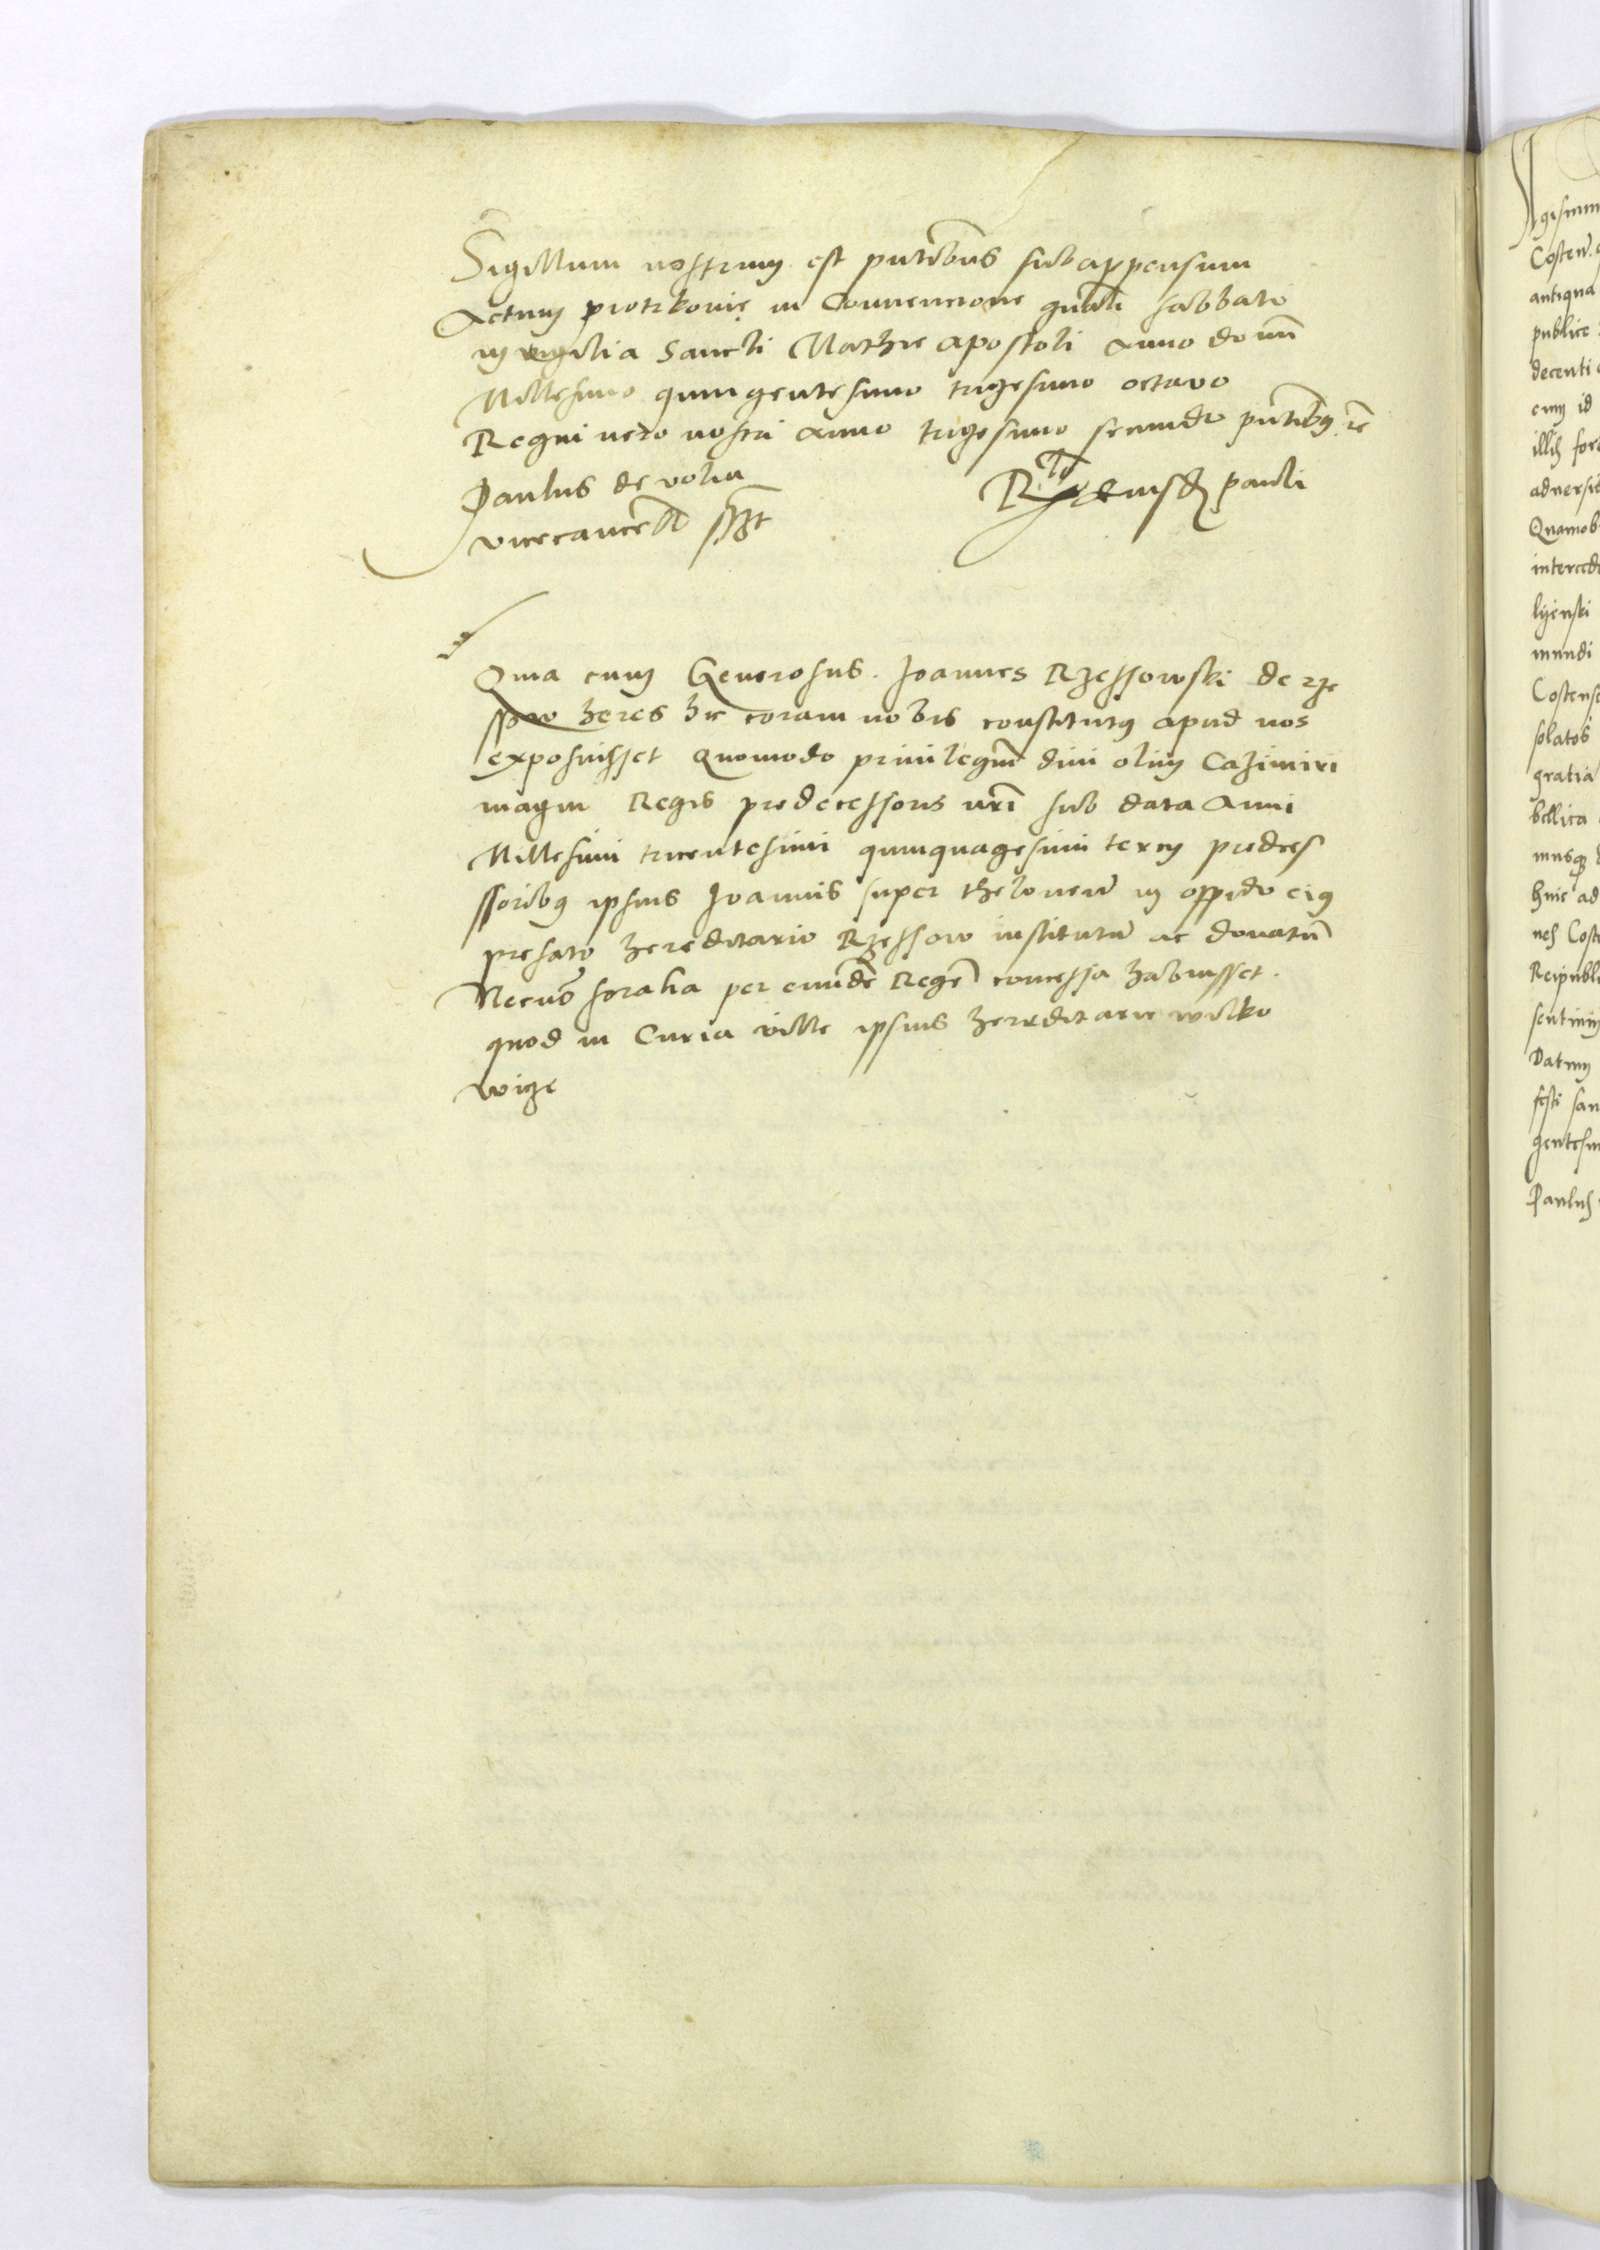 Sigillum nostrum est pntibus subappensum
Actum piotrkovie in Convencione gnali sabbato
in vigilia Sancti Mathie apostoli anno domi
Millesimo quingentesimo trigesimo octavo
Regni vero nostri anno trigesimo secundo pntibus
Paulus de volia
vicecancell sszt
R eiusd pauli
Quia cum Generosus Joannes Rzessowski de rze
ssow heres hic coram nobis constitutus apud nos
exposuisset Quomodo privilegium divi olim Cazimiri
magni Regis predecessoris nri sub data Anni
Millesimi tricentesimi quinquagesimi tercij predces
ssoribus ipsius Joannis super theloneu in oppido eius
prefato hereditario Rzessow institutu ac donatu
Necno foralia per eunde Rege concessa habuisset.
quod in Curia ville ipsius hereditarie wilko
wize
Costen
antiqua
publice
decenti
eum id
illis
Quamob
interced
mundi
Costens
solatos
gratia
bellica
huic ad
nes Cost
Reipubl
Datum
festi san
gentesim
Paulus